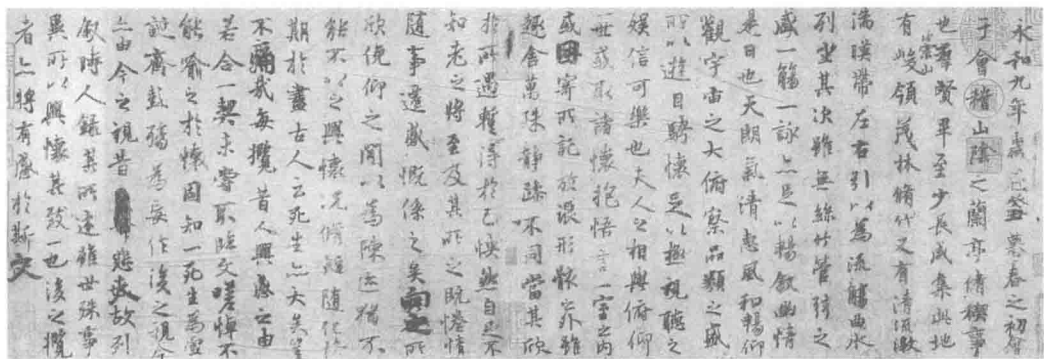 永和九年歲在癸丑暮春之初會
于會稽山陰之蘭亭脩稧事
也羣賢畢至少長咸集此地
有崇山峻領茂林脩竹又有清流激
湍暎帶左右引以為流觴曲水
列坐其次雖無絲竹管弦之
盛一觴一詠亦足以暢叙幽情
是日也天朗氣清惠風和暢仰
觀宇宙之大俯察品類之盛
所以遊目騁懷足以極視聽之
娛信可樂也夫人之相與俯仰
一世或取諸懷抱悟言一室之內
或因寄所託放浪形骸之外雖
趣舍萬殊靜躁不同當其欣
於所遇蹔得於己怏然自足不
知老之將至及其所之既惓情
隨事遷感慨係之矣向之所
欣俛仰之閒以為陳迹猶不
能不以之興懷況脩短隨化
期於盡古人云死生亦大矣豈
不痛哉每攬昔人興感之由
若合一契未嘗不臨文嗟悼不
能喻之於懷固知一死生為虛
誕齊彭殤為妄作後之視今
亦由今之視昔悲夫故列
叙時人錄其所述雖世殊事
異所以興懷其致一也後之攬
者亦將有感於斯文